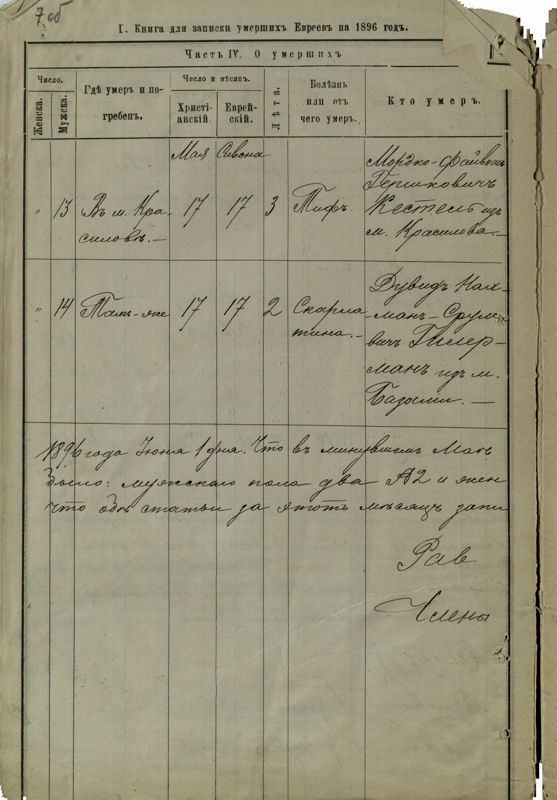 7 об
I. Книга для записки умершихъ Евреевъ на 1896 годъ.
Часть IV. О умершихъ
Число.
Женска.
Мужска.
Гдѣ умеръ и по-
гребенъ.
Число и мѣсяцъ.
Христі-
анскій.
Еврей-
скій.
Лѣта.
Болѣзнь
или отъ
чего умеръ.
Кто умеръ.
Мая Сивона
" 13 Въ м. Кра-
силовѣ.—
17 17 3 Тифъ.
Мордко-Файвиш
Гершковичъ
Кестель изъ
м. Красилова.—
" 14 Тамъ-же
17 17 2 Скарла
тина.—
Дувидъ Нах-
манъ-Сруль
вичъ Гилер-
манъ изъ м.
Базаліи.—
1896 года Июня 1 дня. Что въ минувшемъ Маѣ
было: мужскаго пола два №2 и жен
что обѣ статьи за этотъ мѣсяцъ запи
Рав
Члены